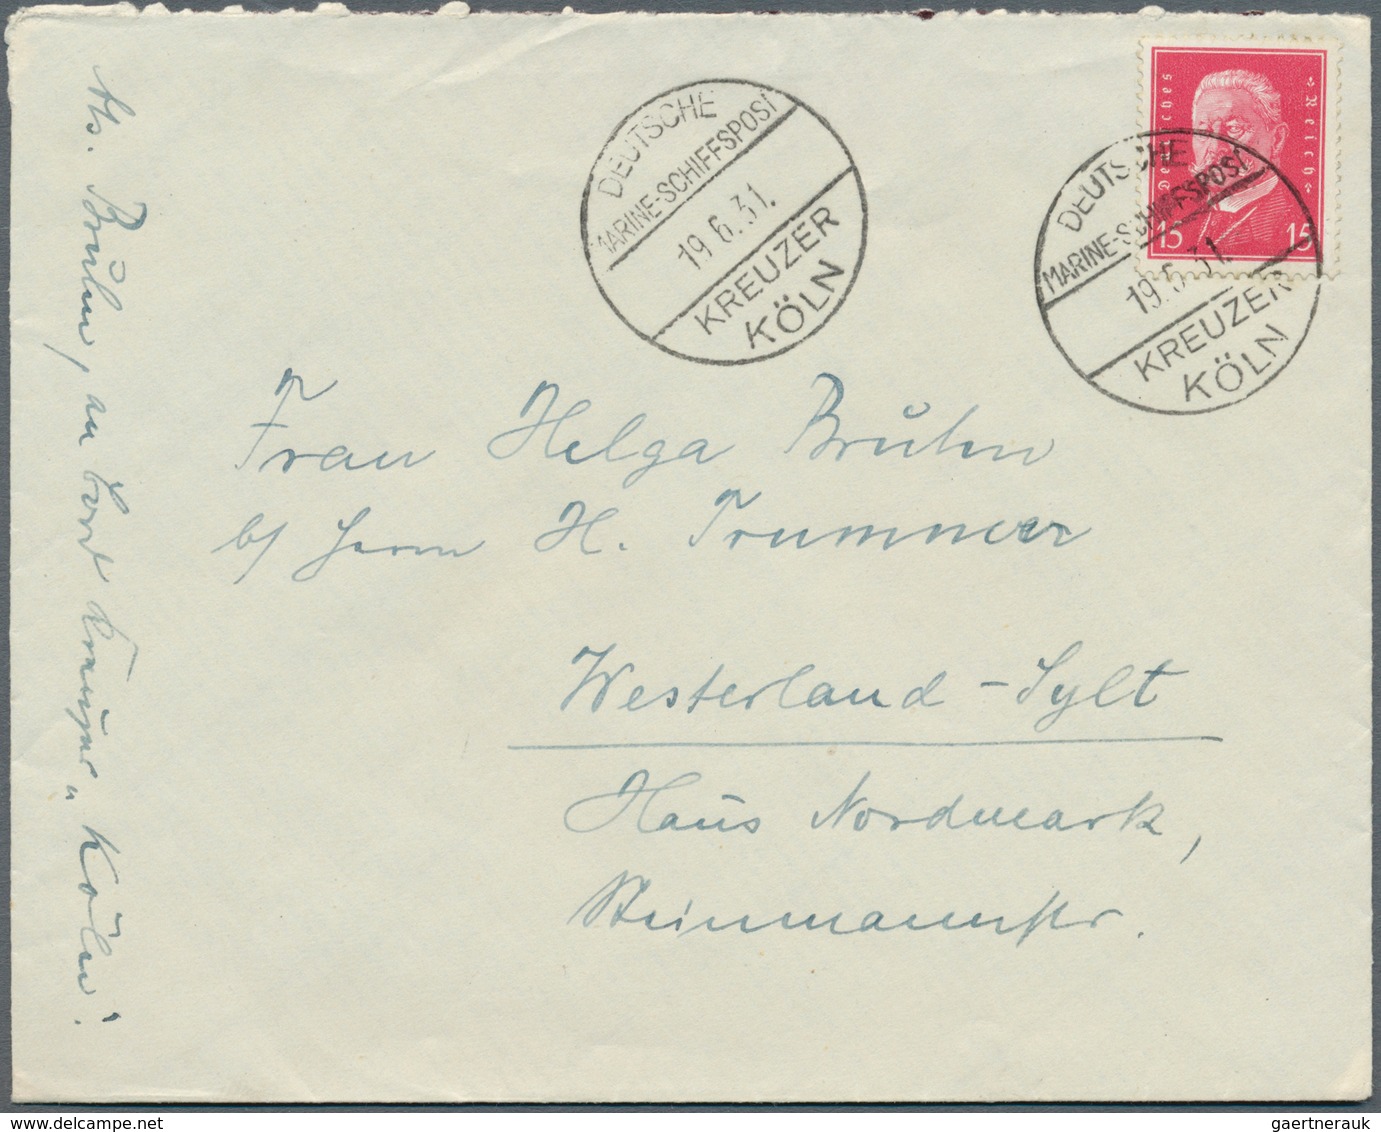 DEUTSCHE
MARINE-SCHIFFSPOST
19.6.31.
KREUZER
KÖLN
Deutsches Reich
15 15
DEUTSCHE
MARINE-SCHIFFSPOST
19.6.31.
KREUZER
KÖLN
Frau Helga Bruhn
b/ Herrn H. Trummer
Westerland-Sylt
Haus Nordmark,
Steinmannstr.
Abs. Bruhn, an Bord Kreuzer „Köln“.
gaertnerauk